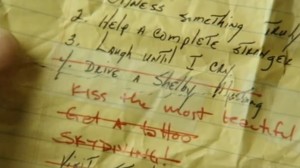 SOMETHING TRULY
2. HELP A COMPLETE STRANGER
3. LAUGH UNTIL I CRY
4. DRIVE A Shelby MUSTANG
Kiss the most beautiful
GET A tattoo
SKYDIVING!
VISIT